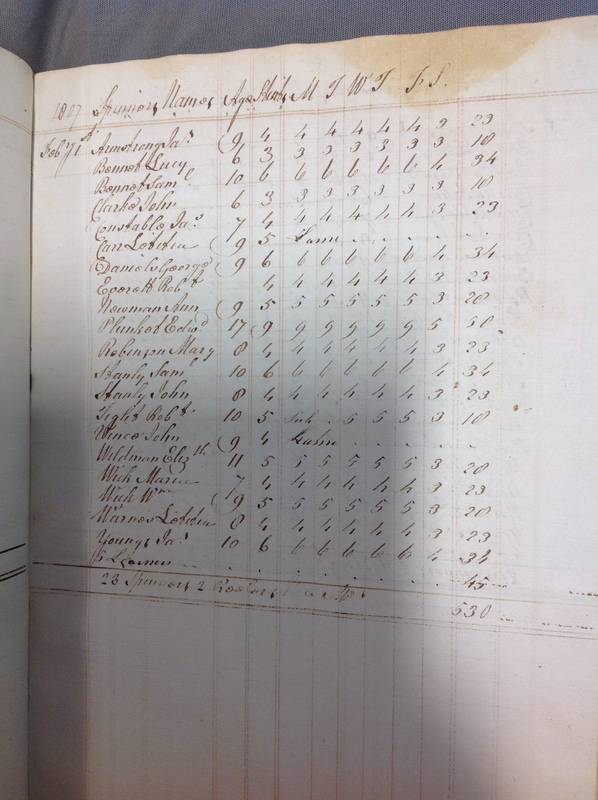 1807 Spinners Names Age Stint M T W T F S.
Feby 1st Armstrong Jas 9 4 4 4 4 4 4 3 23
Bennet Lucy 6 3 3 3 3 3 3 3 18
Bennet Saml 10 6 6 6 6 6 6 4 34
Clarke John 6 3 3 3 3 3 3 3 18
Constable Jas 7 4 4 4 4 4 4 3 23
Carr Letitia 9 5 Lame . . . . .
Daniels George 9 6 6 6 6 6 6 4 34
Everett Robt 4 4 4 4 4 4 3 23
Newman Ann 9 5 5 5 5 5 5 3 28
Plunket Edwd 17 9 9 9 9 9 9 5 50
Robinson Mary 8 4 4 4 4 4 4 3 23
Stanly Saml 10 6 6 6 6 6 6 4 34
Stanly John 8 4 4 4 4 4 4 3 23
Tight Robt 10 5 Sick . 5 5 5 3 18
Vince John 9 4 Lame . . . . .
Wildman Elizth 11 5 5 5 5 5 5 3 28
Wick Maria 7 4 4 4 4 4 4 3 23
Wick Wm 9 5 5 5 5 5 5 3 28
Warnes Letitia 8 4 4 4 4 4 4 3 23
Youngs Jas 10 6 6 6 6 6 6 4 34
5 Learners . . . . . . . . 45
23 Spinners 2 Reelers
530